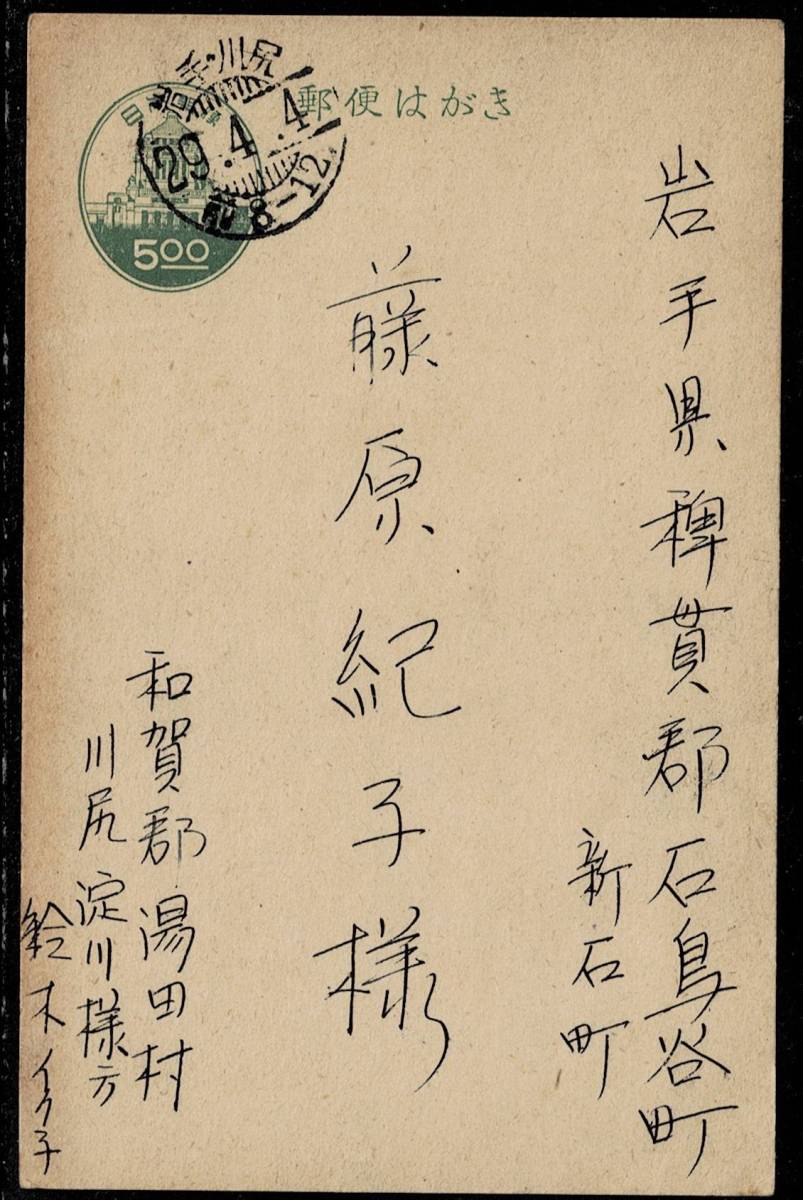 郵便はがき
岩手・川尻
29.4.4
前8-12
日本郵便
5.00
岩手県稗貫郡石鳥谷町
新石町
藤原紀子様
和賀郡湯田村
川尻淀川様方
鈴木イク子